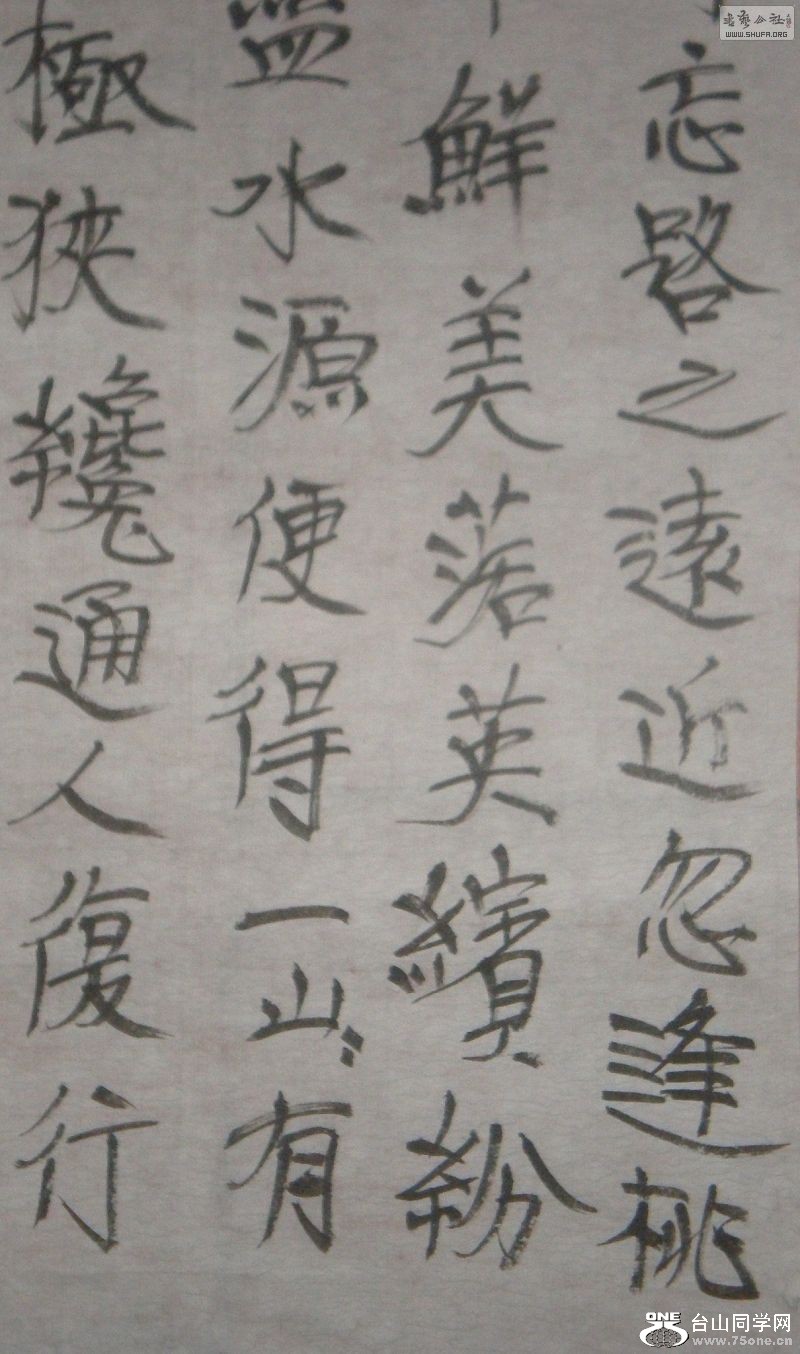 忘路之遠近忽逢桃
鮮美落英繽紛
盡水源便得一山〻有
極狹纔通人復行
WWW.SHUFA.ORG
ONE 台山同学网
www.75one.cn